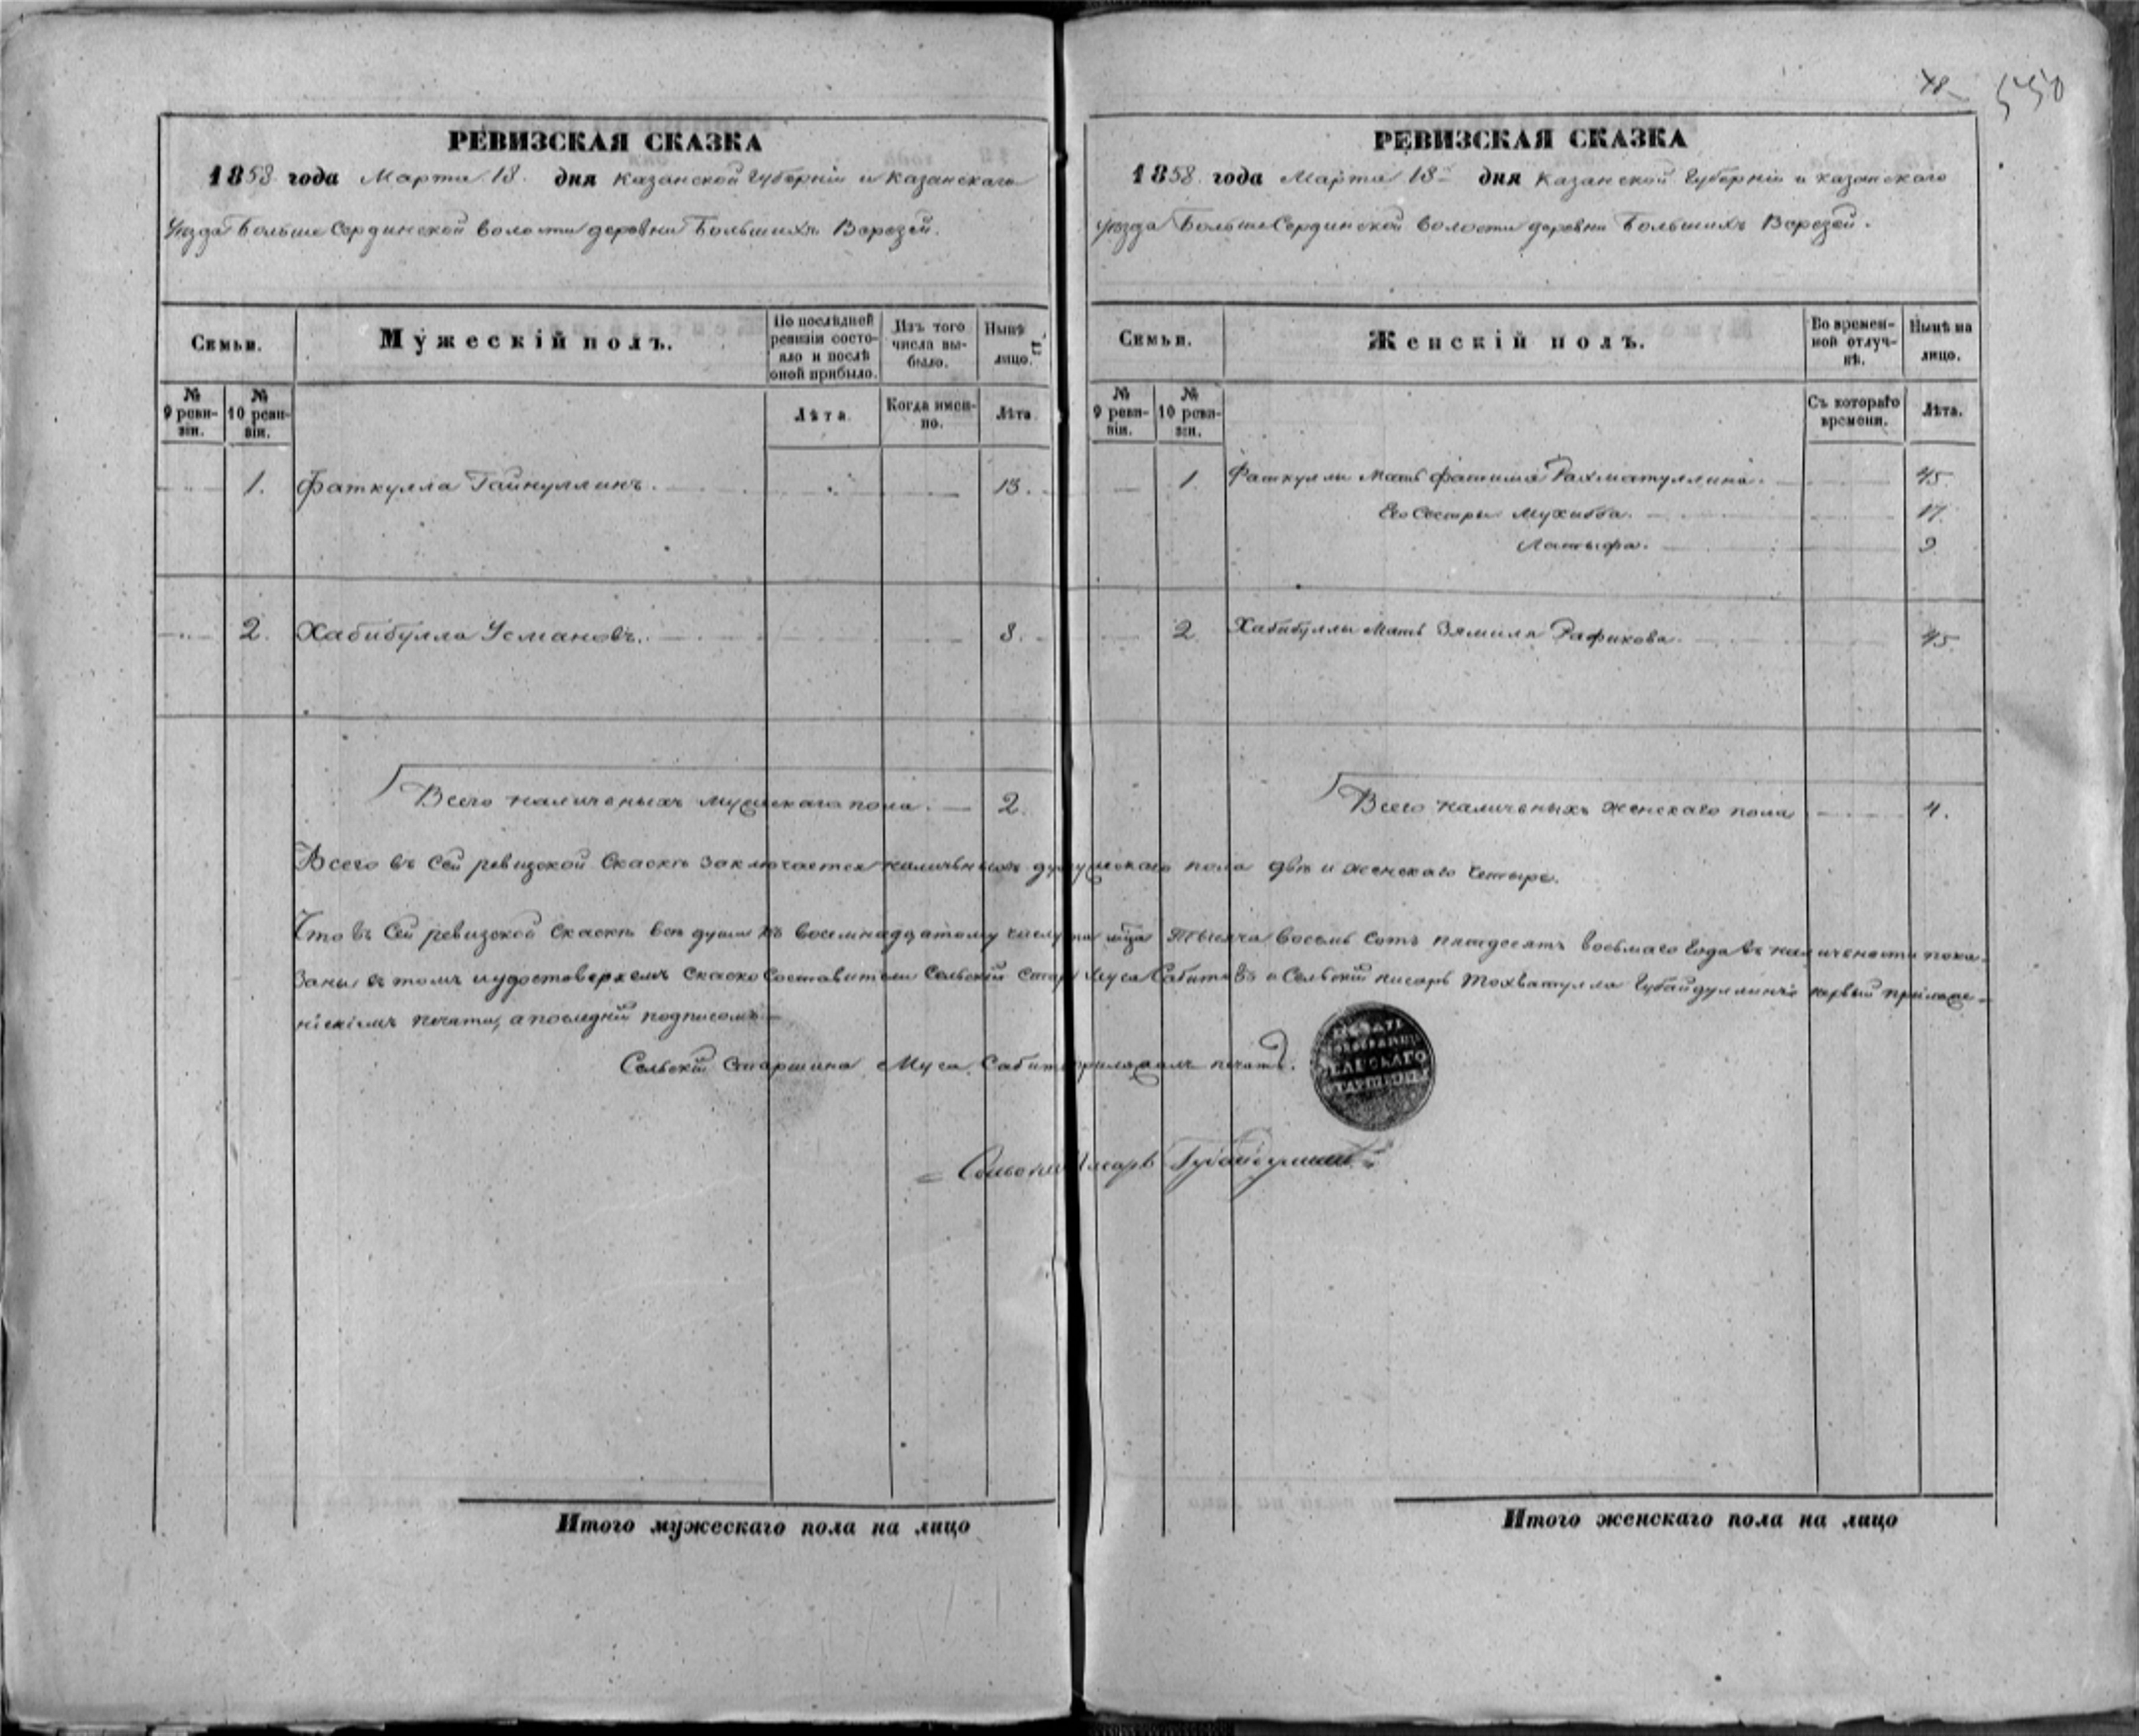 48 550
РЕВИЗСКАЯ СКАЗКА
1858 года Марта 18. дня Казанской Губерніи и Казанскаго
Уезда Больше Сердинской волости деревни Большихъ Верезей.
Семьи.
Мужескій полъ.
По послѣдней ревизіи состояло и послѣ оной прибыло.
Изъ того числа выбыло.
Нынѣ на лицо.
№ 9 ревизіи.
№ 10 ревизіи.
Лѣта.
Когда именно.
Лѣта.
1. Фаткулла Гайнуллинъ. 13.
2. Хабибулла Усмановъ. 8.
Всего наличныхъ мужескаго пола. 2.
РЕВИЗСКАЯ СКАЗКА
1858 года Марта 18 дня Казанской Губерніи и Казанскаго
уезда Больше Сердинской волости деревни Большихъ Верезей.
Семьи.
Женскій полъ.
Во временной отлучкѣ.
Нынѣ на лицо.
№ 9 ревизіи.
№ 10 ревизіи.
Съ котораго времени.
Лѣта.
1. Фаткуллы Мать Фатима Рахматуллина. 45.
Его Сестры Мухибба. 17.
Латыфа. 9
2. Хабибуллы Мать Зямиля Рафикова. 45.
Всего наличеныхъ женскаго пола 4.
Всего въ сей ревизской скаскѣ заключается наличныхъ душъ мужескаго пола двѣ и женскаго четыре.
Что въ сей ревизской скаскѣ всѣ души къ восемнадцатому числу марта тысяча восемь сотъ пятдесятъ восьмаго года въ наличености пока-
заны въ томъ и удостоверяемъ скаско составители Сельскій старшина Муса Сабитовъ и Сельскій писарь Тохватулла Губайдуллинъ первый приложе-
ніемъ печати, а последній подписомъ
Сельскій Старшина Муса Сабитовъ приложилъ печать.
ПЕЧАТЬ
СЕЛЬСКАГО
СТАРШИНЫ
Сельский Писарь Губайдуллинъ
Итого мужескаго пола на лицо
Итого женскаго пола на лицо